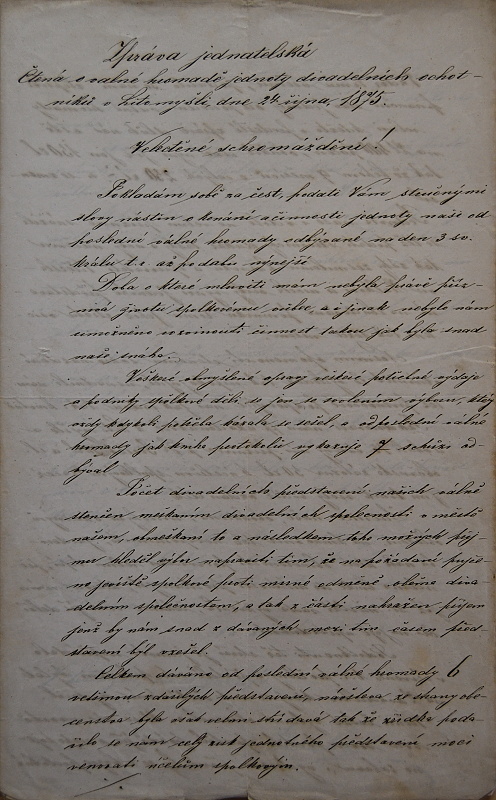 Zpráva jednatelská
Čtená o valné hromadě jednoty divadelních ochot-
níků v Litomyšli, dne 24 října, 1875.
Velectěné schromáždění!
Pokládám sobě za čest, podati Vám, stručnými
slovy nástin o konání a činnosti jednoty naší od
poslední válné hromady odbývané na den 3 sv.
králů t.r. až po dobu nynější.
Doba o které mluviti mám nebyla právě příz-
nivá, životu spolkovému vůbec, a jinak nebylo nám
umožněno rozvinouti činnost takou jak byla snad
naše snaha.
Veškeré obmýšlené opravy potřebné výdaje
a podniky spolkové děly se jen se svolením výboru, který
vždy kdykoli potřeba kázala se sešel, a od poslední válné
hromady jak kniha protokolů vykazuje 7 schůzí od-
býval.
Počet divadelních představení našich válně
stenčen meškáním divadelních společností v městě
našem, obmeškaní to a následkem toho možných příj-
mů hleděl výbor napraviti tím, že na požádání půjče-
no jeviště spolkové proti mírné odměně oběma diva-
delním společnostem, a tak z části nahražen příjem
jenž by nám snad z dávaných mezi tím časem před-
stavení byl vzešel.
Celkem dáváno od poslední válné hromady 6
většinou zdařilých představení, návštěva ze strany obe-
censtva byla však velmi střídavá tak že zřídka poda-
řilo se nám celý zisk jednotného představení moci
venovati účelům spolkovým.